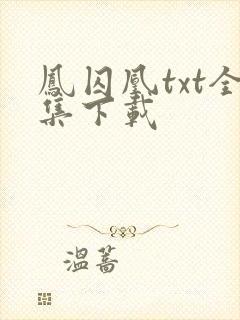 鳳囚凰txt全
集下載
溫蒿